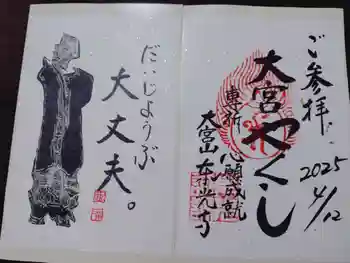 ご参拝
2025
4/12
大宮やくし
専祈 心願成就
大宮山 東光寺
だいじょうぶ
大丈夫。